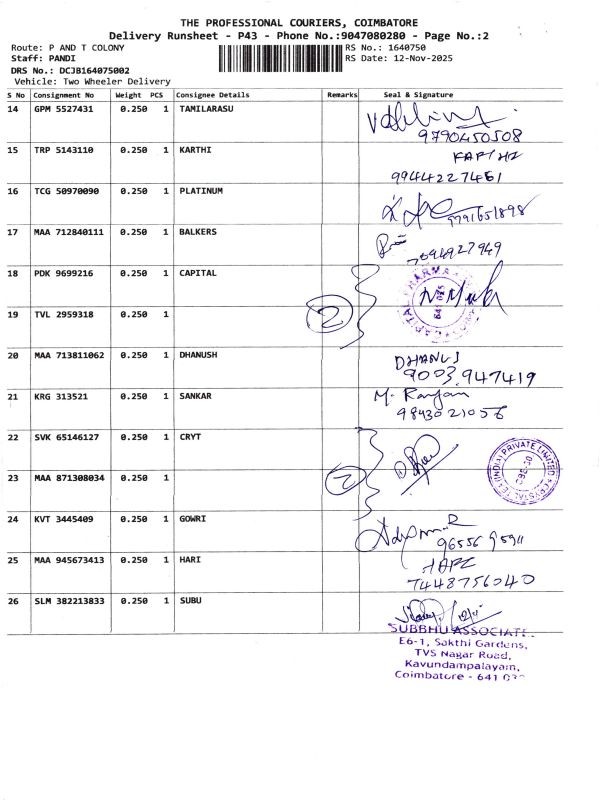 THE PROFESSIONAL COURIERS, COIMBATORE
Delivery Runsheet - P43 - Phone No.:9047080280 - Page No.:2
Route: P AND T COLONY RS No.: 1640750
Staff: PANDI RS Date: 12-Nov-2025
DRS No.: DCJB164075002
Vehicle: Two Wheeler Delivery
S No Consignment No Weight PCS Consignee Details Remarks Seal & Signature
14 GPM 5527431 0.250 1 TAMILARASU
9790450508
15 TRP 5143110 0.250 1 KARTHI
9944227461
16 TCG 50970090 0.250 1 PLATINUM
9791651898
17 MAA 712840111 0.250 1 BALKERS
18 PDK 9699216 0.250 1 CAPITAL
2
19 TVL 2959318 0.250 1
20 MAA 713811062 0.250 1 DHANUSH
9003947419
21 KRG 313521 0.250 1 SANKAR
9843021056
22 SVK 65146127 0.250 1 CRYT
(INDIA) PRIVATE LIMITED
2
23 MAA 871308034 0.250 1
24 KVT 3445409 0.250 1 GOWRI
25 MAA 945673413 0.250 1 HARI
7448756040
26 SLM 382213833 0.250 1 SUBU
SUBBHU ASSOCIATE
E6-1, Sakthi Gardens,
TVS Nagar Road,
Kavundampalayam,
Coimbatore - 641 030